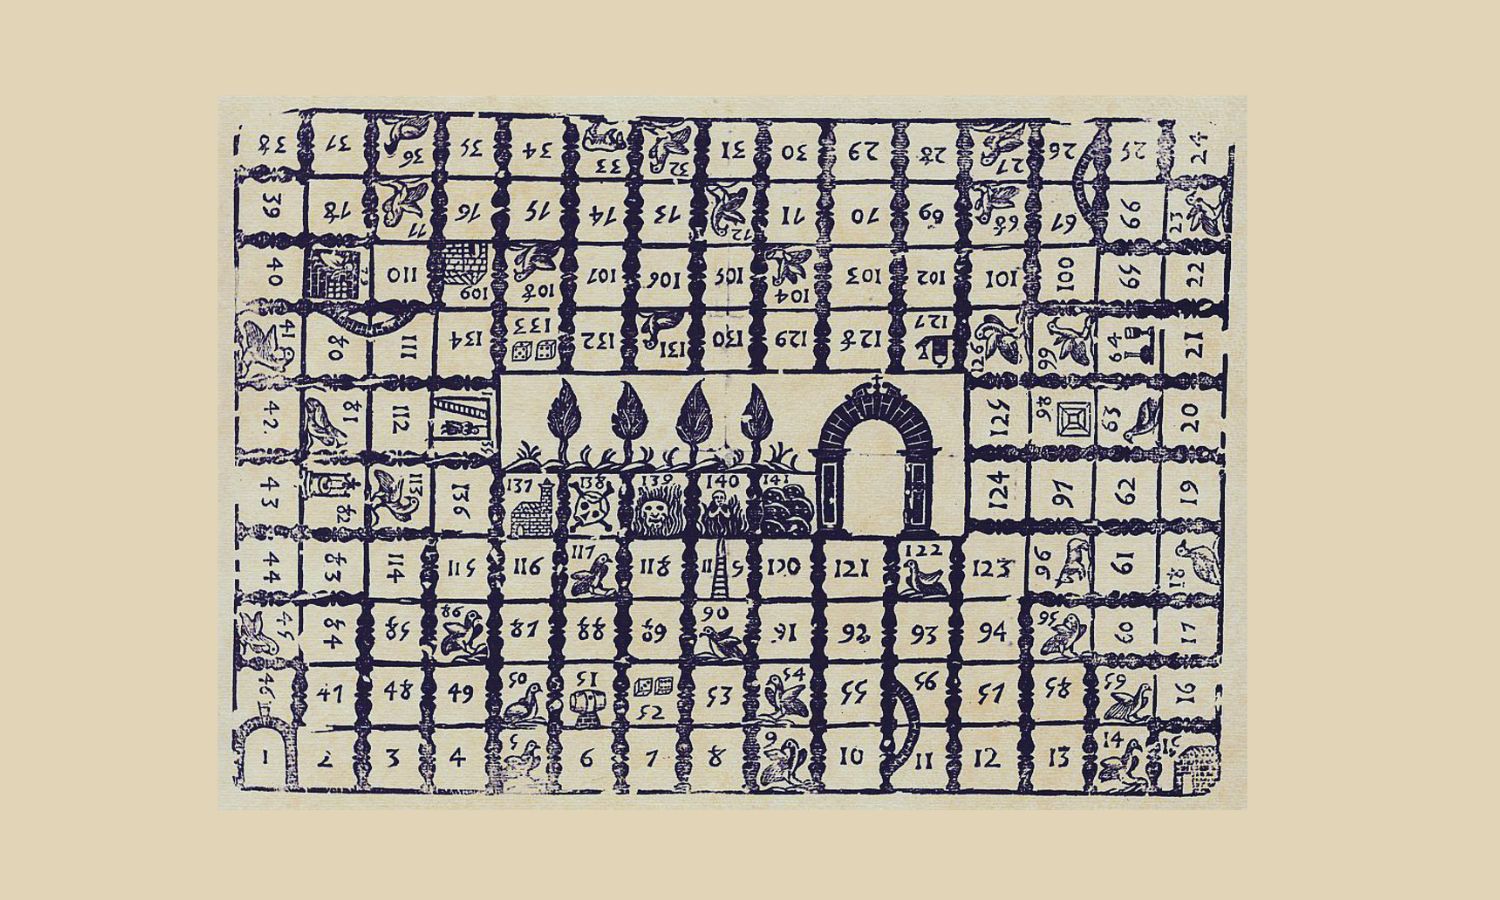 38 37 36 35 34 33 32 31 30 29 28 27 26 25 24
39 78 77 76 75 74 73 72 71 70 69 68 67 66 23
40 79 110 109 108 107 106 105 104 103 102 101 100 65 22
41 80 111 134 133 132 131 130 129 128 127 126 99 64 21
42 81 112 135 125 98 63 20
43 82 113 136 137 138 139 140 141 124 97 62 19
44 83 114 115 116 117 118 119 120 121 122 123 96 61 18
45 84 85 86 87 88 89 90 91 92 93 94 95 60 17
46 47 48 49 50 51 52 53 54 55 56 57 58 59 16
1 2 3 4 5 6 7 8 9 10 11 12 13 14 15